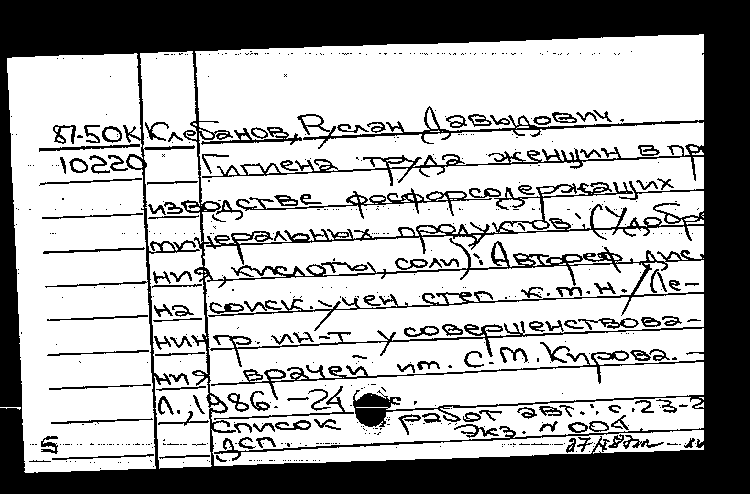 87-50К Клебанов, Руслан Давыдович.
10220 Гигиена труда женщин в про
изводстве фосфорсодержащих
минеральных продуктов: (Удобре
ния, кислоты, соли): Автореф. дис.
на соиск. учен. степ. к.т.н. / Ле-
нингр. ин-т усовершенствова-
ния врачей им. С.М. Кирова. -
Л., 1986. - 24 с.
список работ авт.: с. 23-2
Экз. N 004.
ДСП.
5